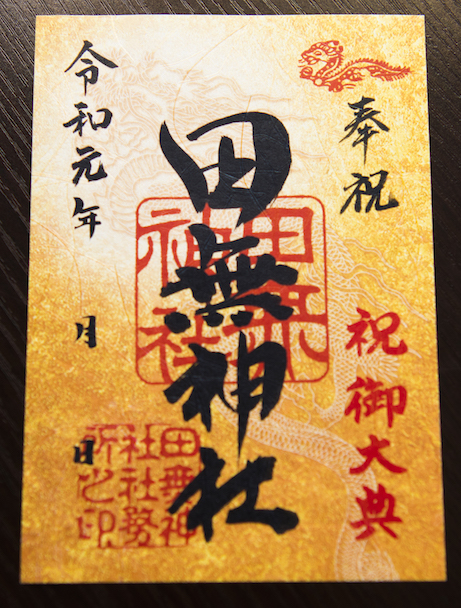 奉祝
祝御大典
田無神社
田無神社
田無神
社社務
所之印
令和元年 月 日